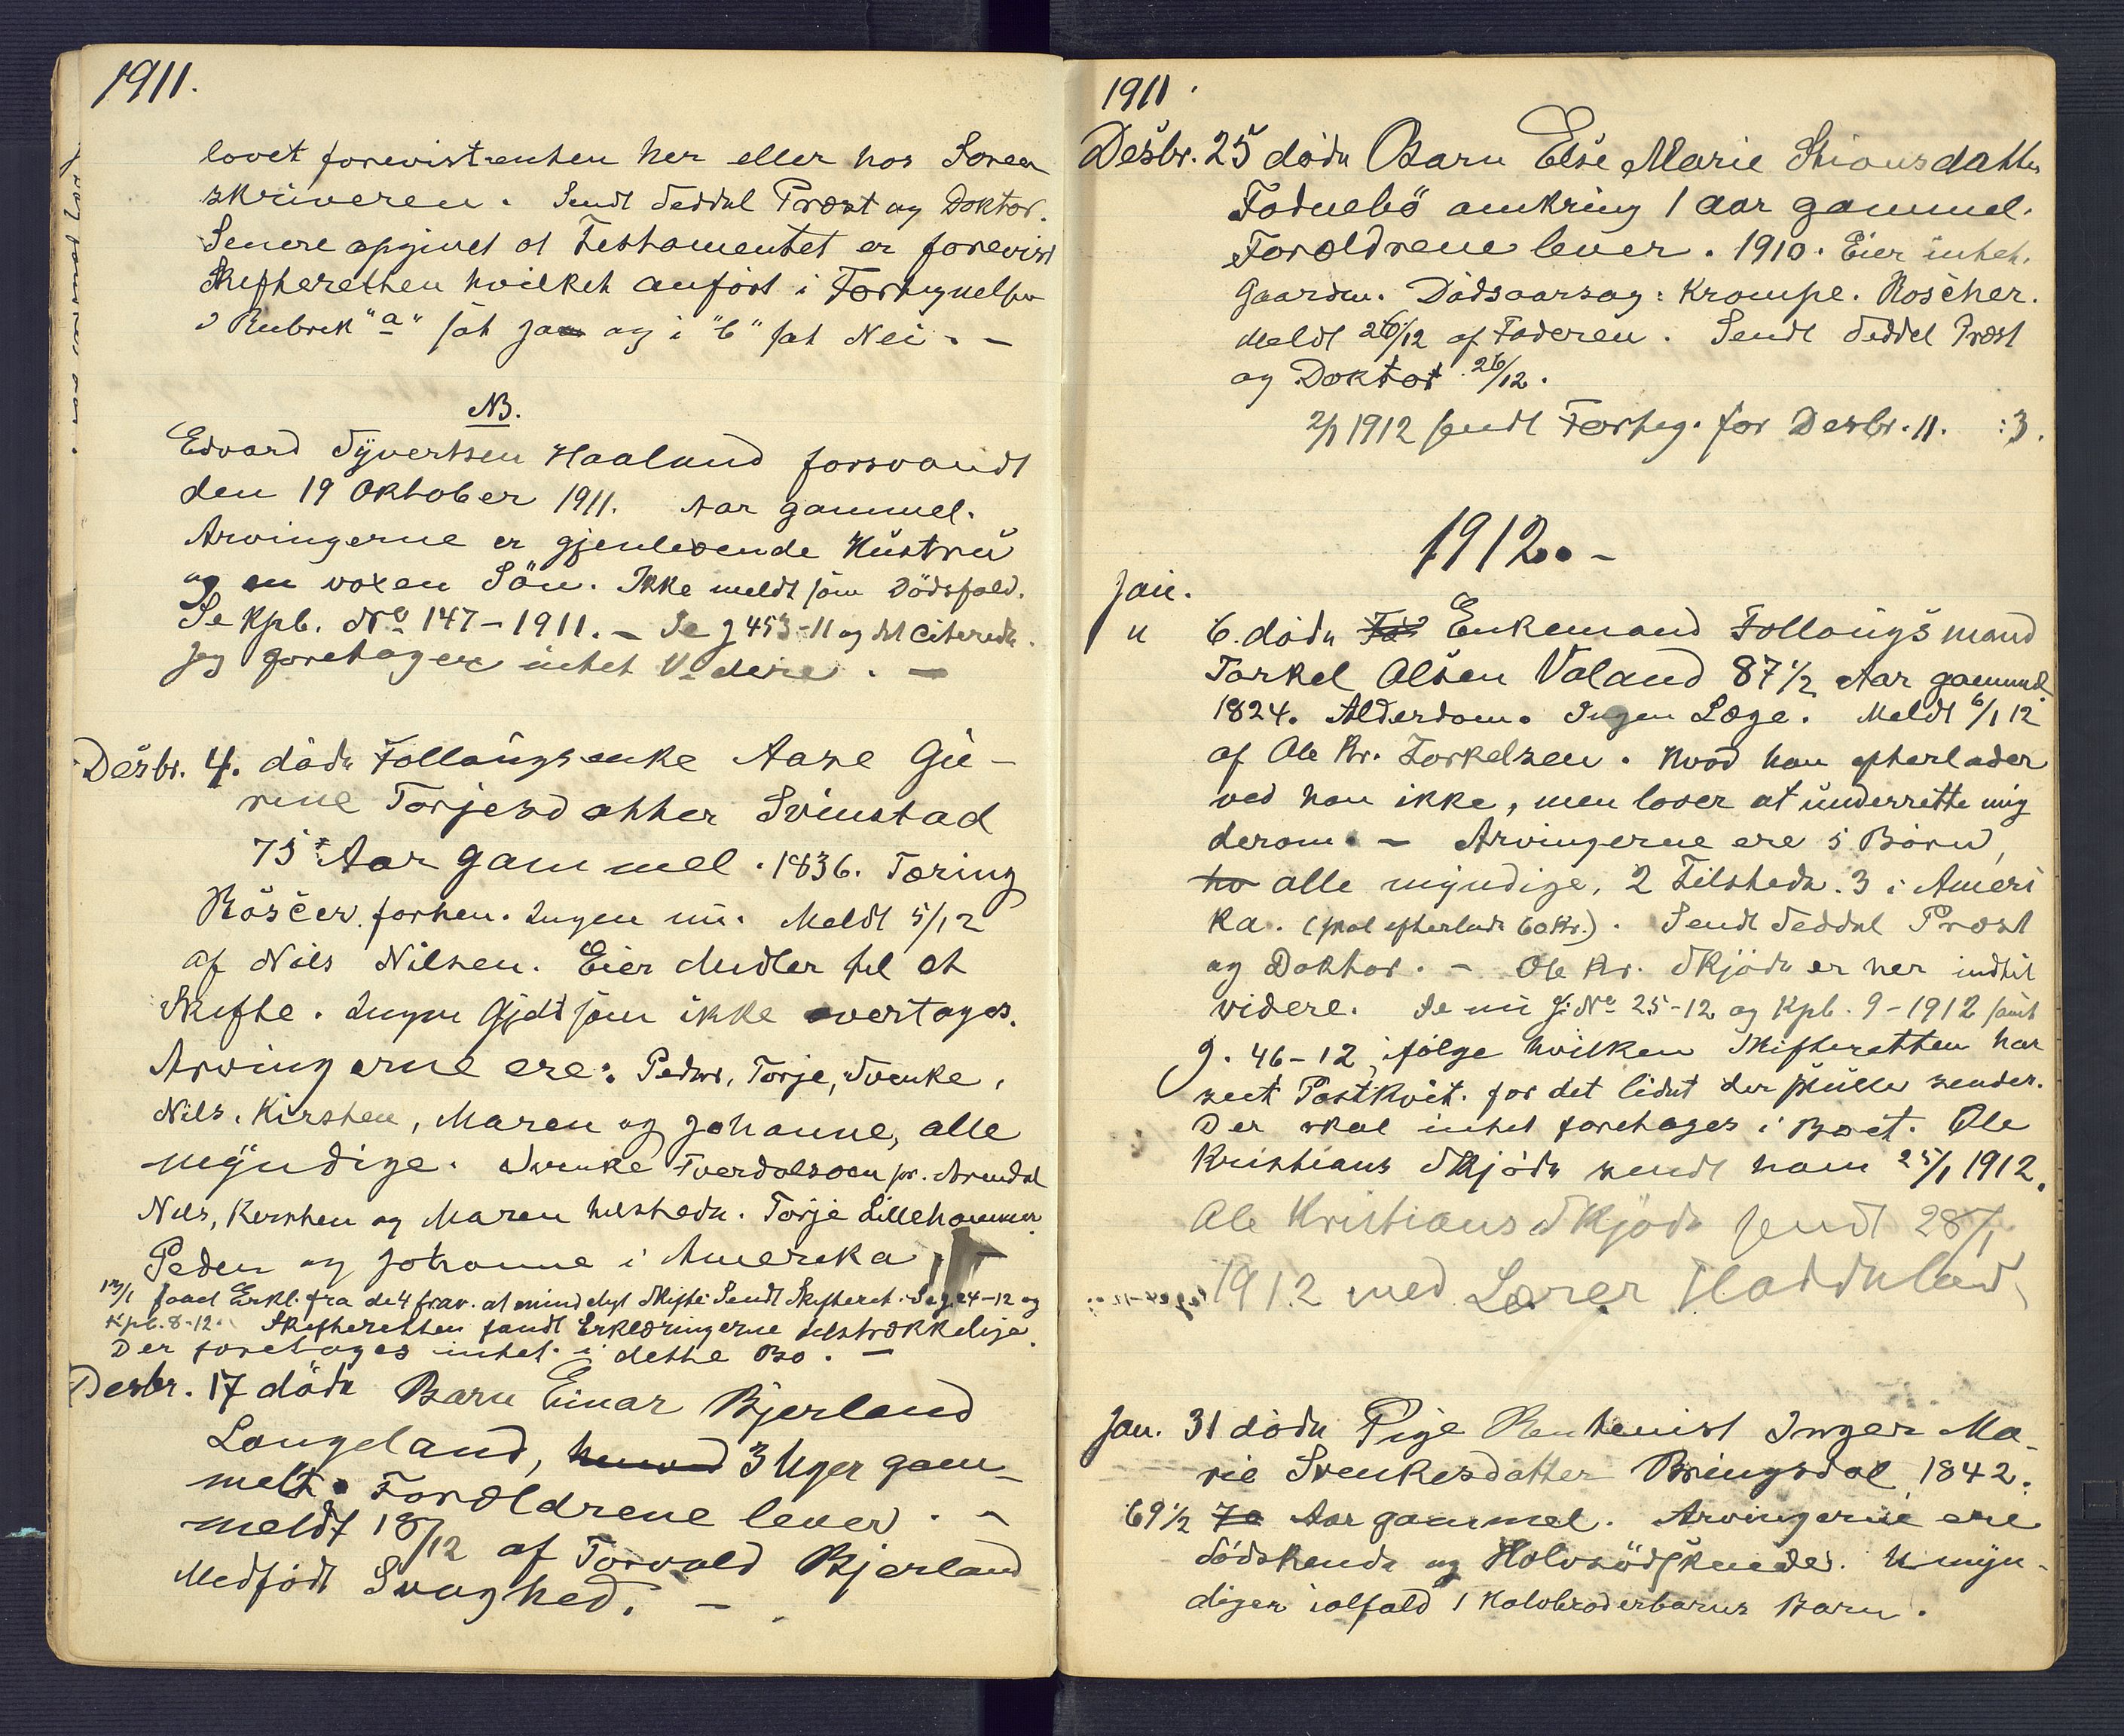 1911.
lovet forevist enten her eller hos Soren
skriveren. Sendt Seddel Præst og Doktor.
Senere opgivet at Testamentet er forevist
Skifteretten hvilket anført i Fortegnelsen
i Rubrik "a" sat Ja og i "b" sat Nei. -
NB.
Edvard Syvertsen Haaland forsvandt
den 19 Oktober 1911. Aar gammel.
Arvingerne er gjenlevende Hustru
og en voxen Søn. Ikke meldt som Dødsfald.
Se Kpb. No 147-1911. - Se J 453-11 og det citerede.
Jeg foretager intet Videre. -
Desbr. 4. døde Follaugsenke Aase Gu-
rine Torjesdatter Svinstad
75 Aar gammel. 1836. Tæring
Röscer forhen. Ingen nu. Meldt 5/12
af Nils Nilsen. Eier Midler til et
Skifte. Ingen Gjeld som ikke overtages.
Arvingerne ere: Peder, Torje, Svenke,
Nils, Kirsten, Maren og Johanne, alle
myndige. Svenke Tverdalsøen pr. Arendal
Nils, Kirsten og Maren tilstede. Torje Lillehammer
Peder og Johanne i Amerika
13/1 faaet Erkl. fra de 4 frav. at mindeligt Skifte. Sendt Skifteret. Se J. 24-12 og
Kpb. 8-12. Skifteretten fandt Erklæringerne tilstrækkelige.
Der foretages intet i dette Bo. -
Desbr. 17 døde Barn Einar Bjerland
Langeland, 3 Uger gam-
melt. Forældrene lever. -
meldt 18/12 af Torvald Bjerland
Medfødt Svaghed. -
1911.
Desbr. 25 døde Barn Else Marie Stiansdatter
Fodnebö omkring 1 Aar gammel.
Forældrene lever. 1910. Eier intet.
Gaarden. Dødsaarsag: Krampe. Roscher.
Meldt 26/12 af Faderen. Sendt Seddel Præst
og Doktor 26/12.
2/1 1912 sendt Forteg. for Desbr. 11. :3.
1912. -
Jan.
" 6. døde Enkemand Follaugsmand
Torkel Olsen Valand 87 1/2 Aar gammel
1824. Alderdom. Ingen Læge. Meldt 6/1 12
af Ole Kr. Torkelsen. Hvad han efterlader
ved han ikke, men lover at underrette mig
derom. - Arvingerne ere 5 Börn,
alle myndige, 2 Tilstede. 3 i Ameri
ka. (skal efterlade 60 Kr.). Sendt Seddel Præst
og Doktor. - Ole Kr. Skjöde er her indtil
videre. Se nu J. No 25-12 og Kpb. 9-1912 samt
J. 46-12, ifølge hvilken Skifteretten har
sent Postkvit. for det lidet der skulle sendes.
Der skal intet foretages i Boet. Ole
Kristians Skjöde sendt ham 25/1 1912.
Ole Kristians Skjöde sendt 28/1
1912 med Lærer Haddeland
Jan. 31 döde Pige Rentenist Inger Ma-
rie Svenkesdatter Bringsdal 1842.
69 1/2 70 Aar gammel. Arvingerne ere
Södskende og Halvsödskende. Umyn-
diger ialfald 1 Halvbroderbarns Barn.